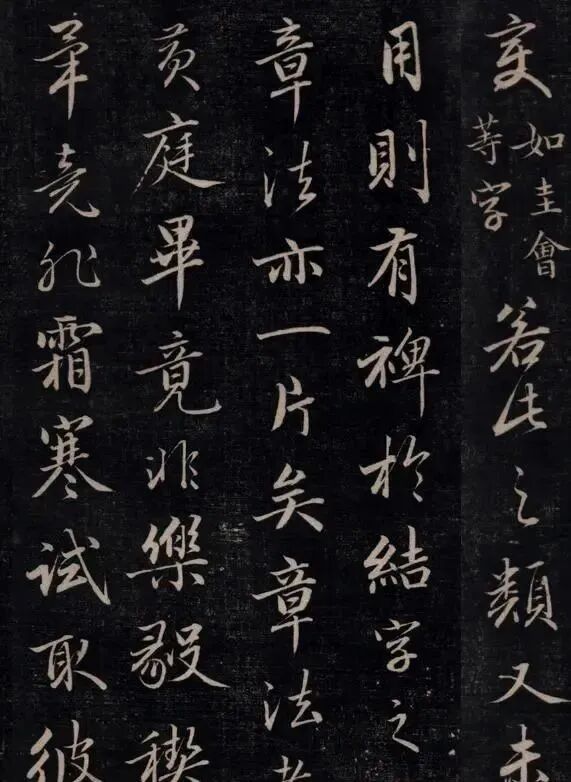 如圭會
等字
若此之類又未
用則有裨於結字之
章法亦一片矣章法
黃庭畢竟非樂毅稧
畢竟非霜寒試取彼